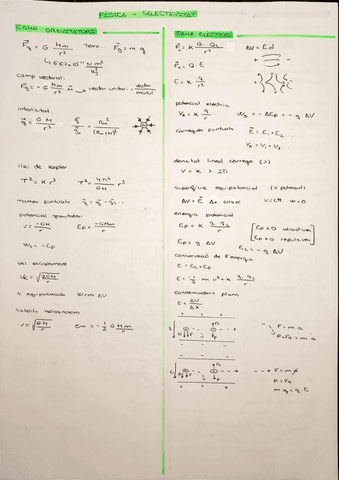 FÍSICA - SELECTIVITAT
CAMP GRAVITATORI
F⃗g = G Mm/r² Terra... F⃗g = m·g
↳ 6'67·10⁻¹¹ N m²/kg²
camp vectorial:
F⃗g = -G Mm/r² vector unitari = vector/mòdul
intensitat
g⃗ = G M/r²
llei de Kepler
T² = K r³ T² = 4π²/GM r³
masses puntuals g⃗ = g⃗₁ + g⃗₂ ...
potencial gravitatori
V = -GM/r Ep = -GMm/r
Wg = -Ep
vel. escapament
Ve = √(2GM/r)
s. equipotencials W = m ΔV
satèl·lits
V = √(GM/r) Em = -1/2 G Mm/r
CAMP ELÈCTRIC
F⃗e = K Q₁·Q₂/r² ΔV = E d
F⃗e = Q·E
E = K q/r²
potencial elèctric
Ve = K q/r We = -ΔEp = -q ΔV
càrregues puntuals E⃗ = E⃗₁ + E⃗₂
V = V₁ + V₂...
densitat lineal càrrega (λ)
superfície equipotencial (= potencial)
V = ctt W = 0
energia potencial
Ep = K q·q₂/r
Ep<0 atractives
Ep>0 repulsives
Ep = q ΔV
conservació de l'energia
E = Ec + Ep
E = 1/2 m v² + K q₁·q₂/r
condensadors plans
E = ΔV/Δx
F = m·a
F = Fe
m·g = q·E